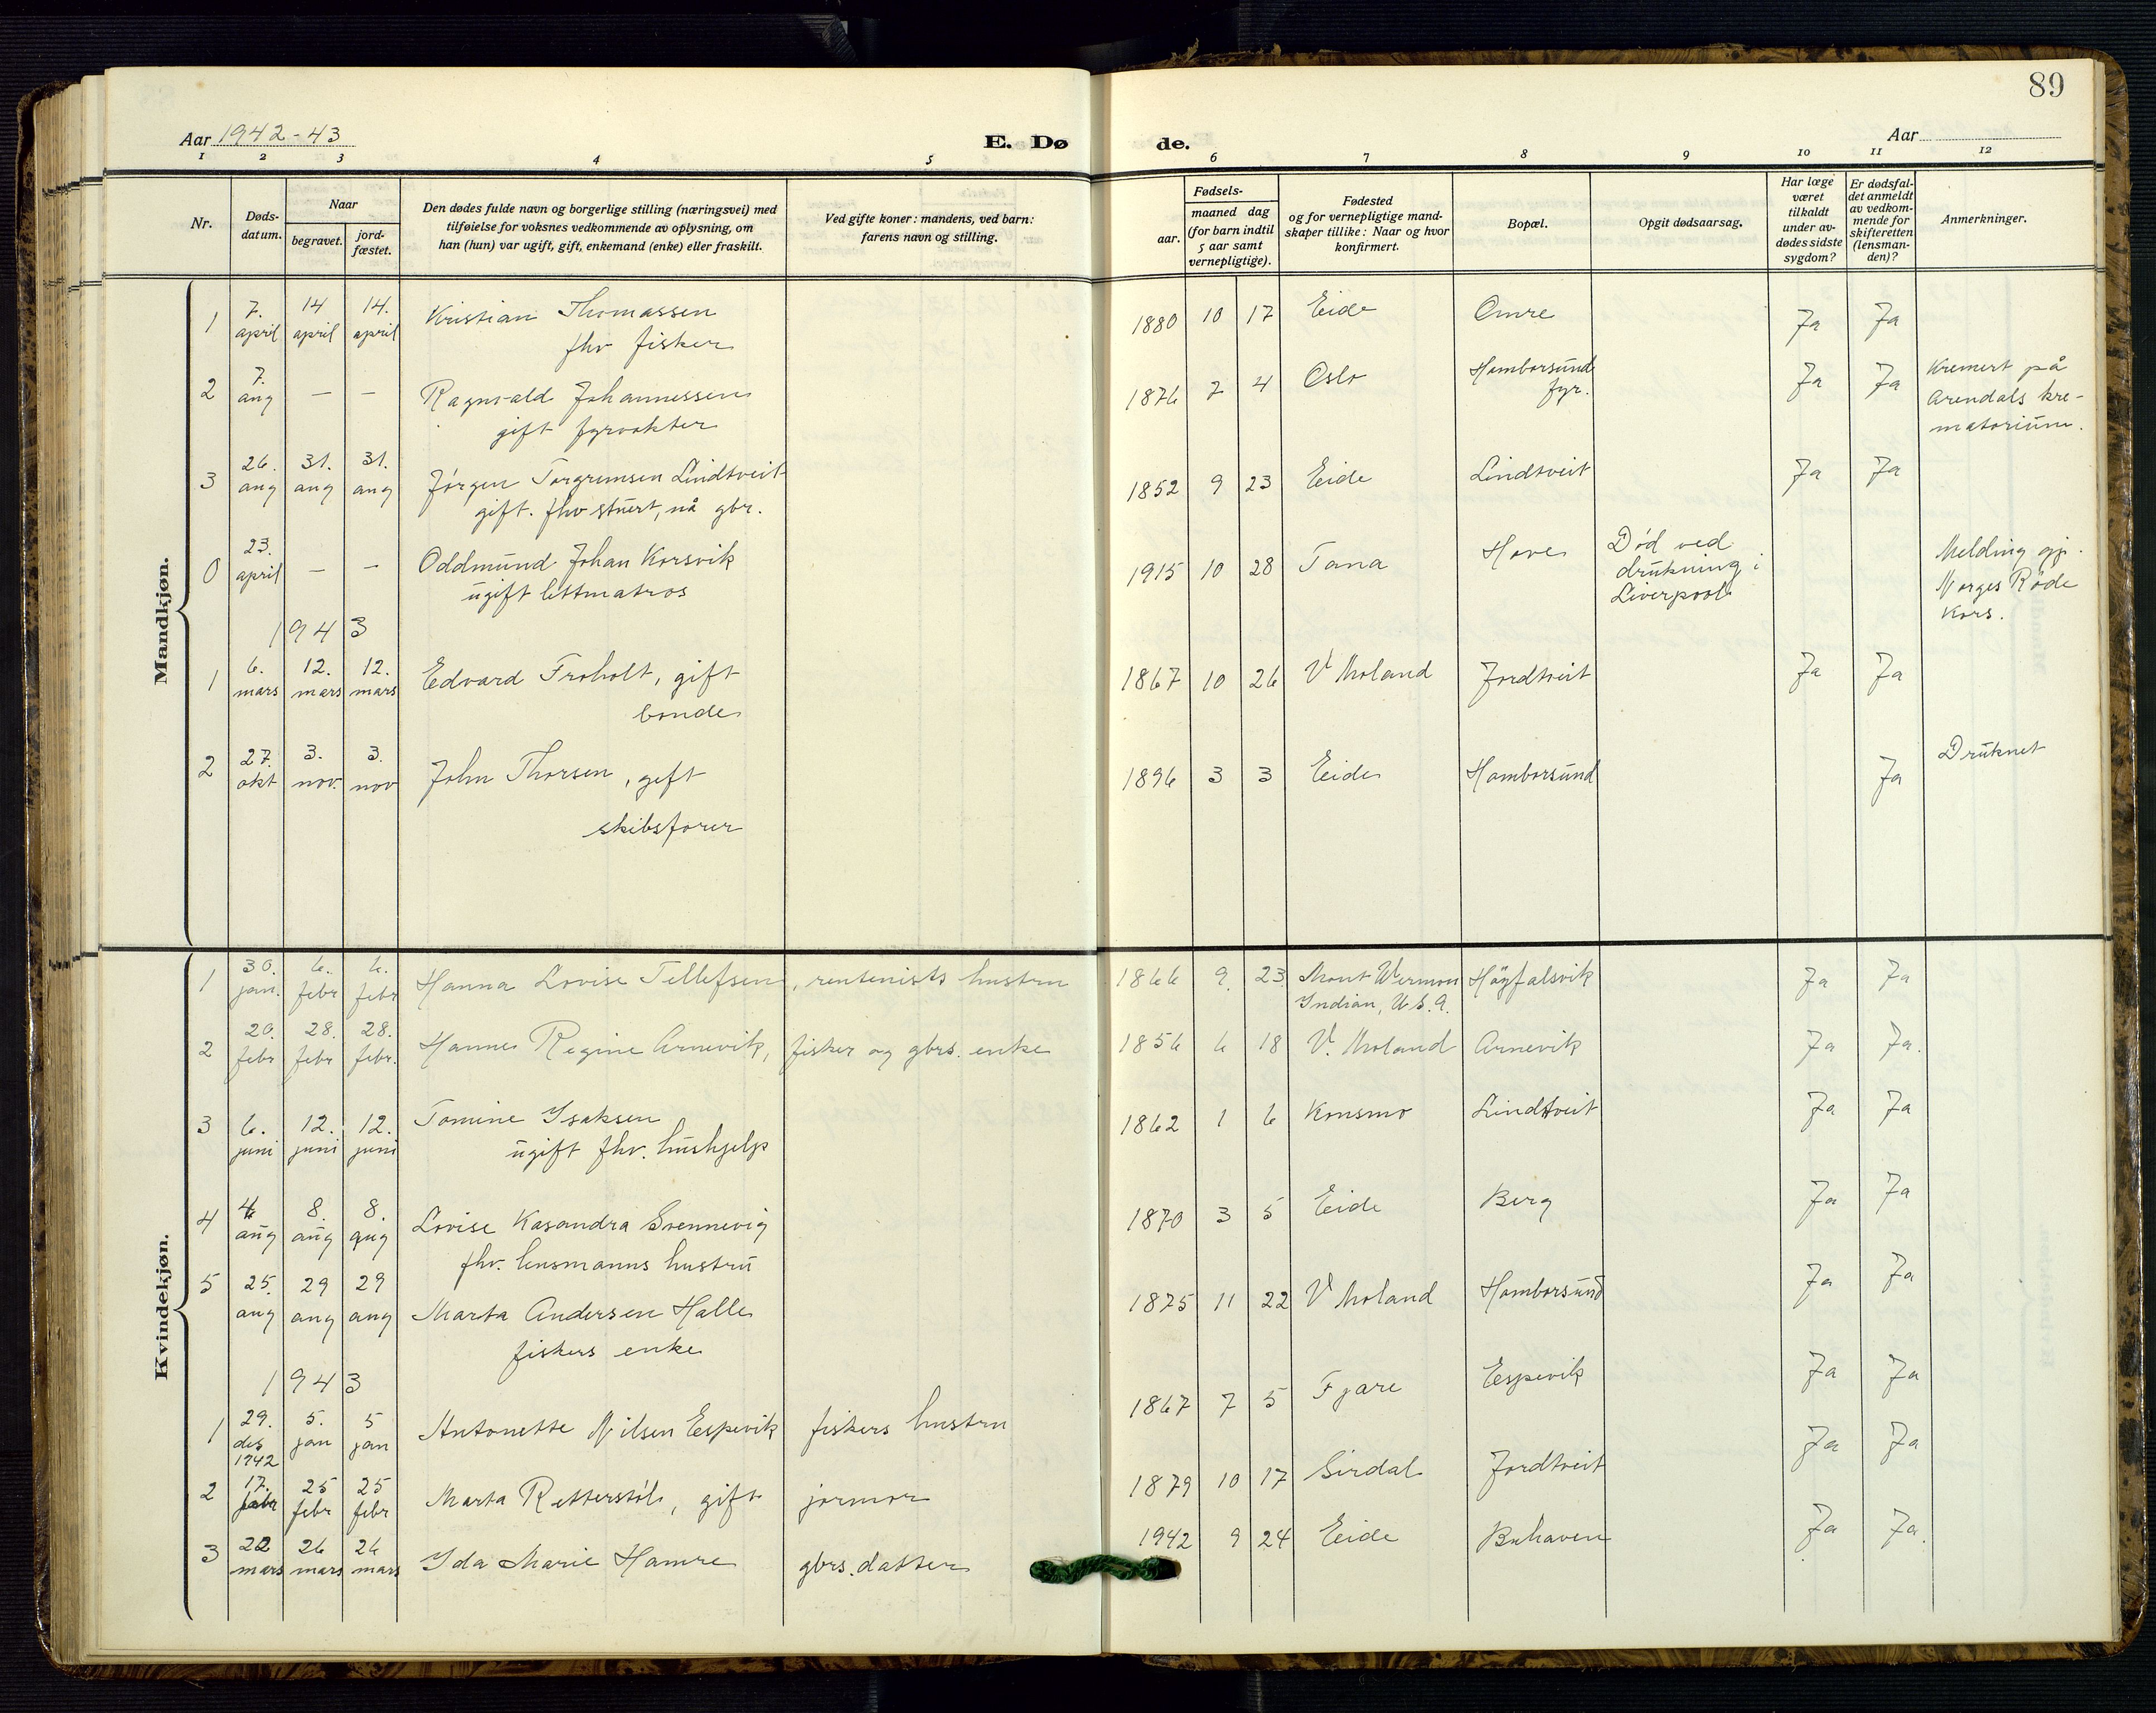 89
Aar 1942-43
E. Dø de.
Aar
1 2 3 4 5 6 7 8 9 10 11 12
Nr.
Døds-
datum.
Naar
begravet.
jord-
fæstet.
Den dødes fulde navn og borgerlige stilling (næringsvei) med
tilføielse for voksnes vedkommende av oplysning, om
han (hun) var ugift, gift, enkemand (enke) eller fraskilt.
Ved gifte koner: mandens, ved barn:
farens navn og stilling.
Fødsels-
aar.
maaned dag
(for barn indtil
5 aar samt
vernepligtige).
Fødested
og for vernepligtige mand-
skaper tillike: Naar og hvor
konfirmert.
Bopæl.
Opgit dødsaarsag.
Har læge
været
tilkaldt
under av-
dødes sidste
sygdom?
Er dødsfal-
det anmeldt
av vedkom-
mende for
skifteretten
(lensman-
den)?
Anmerkninger.
Mandkjøn.
1 7. april 14 april 14. april Kristian Thomassen 1880 10 17 Eide Omre Ja Ja
fhv fisker
2 7. aug — — Ragnvald Johannessen 1876 7 4 Oslo Homborsund fyr. Ja Ja Kremert på
gift fyrvokter Arendals kre-
matorium.
3 26. aug 31. aug 31. aug Jörgen Torgrimsen Lindtveit 1852 9 23 Eide Lindtveit Ja Ja
gift. fhv stuert, nå gbr.
0 23. april — — Oddmund Johan Korsvik 1915 10 28 Tana Hove Död ved Melding gj.
ugift lettmatros drukning i Norges Röde
Liverpool Kors.
1943
1 6. mars 12. mars 12. mars Edvard Froholt, gift 1867 10 26 V Moland Jordtveit Ja Ja
bonde
2 27. okt 3. nov. 3. nov John Thorsen, gift 1896 3 3 Eide Homborsund Ja Druknet
skibsforer
Kvindekjøn.
1 30. jan. 6. febr 6. febr Hanna Lovise Tellefsen, rentenists hustru 1866 9. 23 Mont Wermon Högfalsvik Ja Ja
Indian, U.S.A.
2 20. febr 28. febr 28. febr. Hanne Regine Arnevik, fisker og gbrs. enke 1856 6 18 V. Moland Arnevik Ja Ja.
3 6. juni 12. juni 12. juni Tomine Isaksen 1862 1 6 Konsmo Lindtveit Ja Ja
ugift fhv. hushjelp
4 4 aug 8. aug 8. aug Lovise Kasandra Svennevig 1870 3 5 Eide Berg Ja Ja
fhv. lensmanns hustru
5 25. aug 29 aug 29 aug Marta Andersen Halle 1875 11 22 V Moland Homborsund Ja Ja
fiskers enke
1943
1 29. des 1942 5. jan 5 jan Antonette Nilsen Espevik fiskers hustru 1867 7 5 Fjære Eespevik Ja Ja
2 17. febr 25 febr 25 febr Marta Retterstöl, gift jormor 1879 10 17 Sirdal Jordtveit Ja Ja
3 22 mars 26 mars 26 mars Ida Marie Hamre gbrs. datter 1942 9 24 Eide Buhaven Ja Ja.